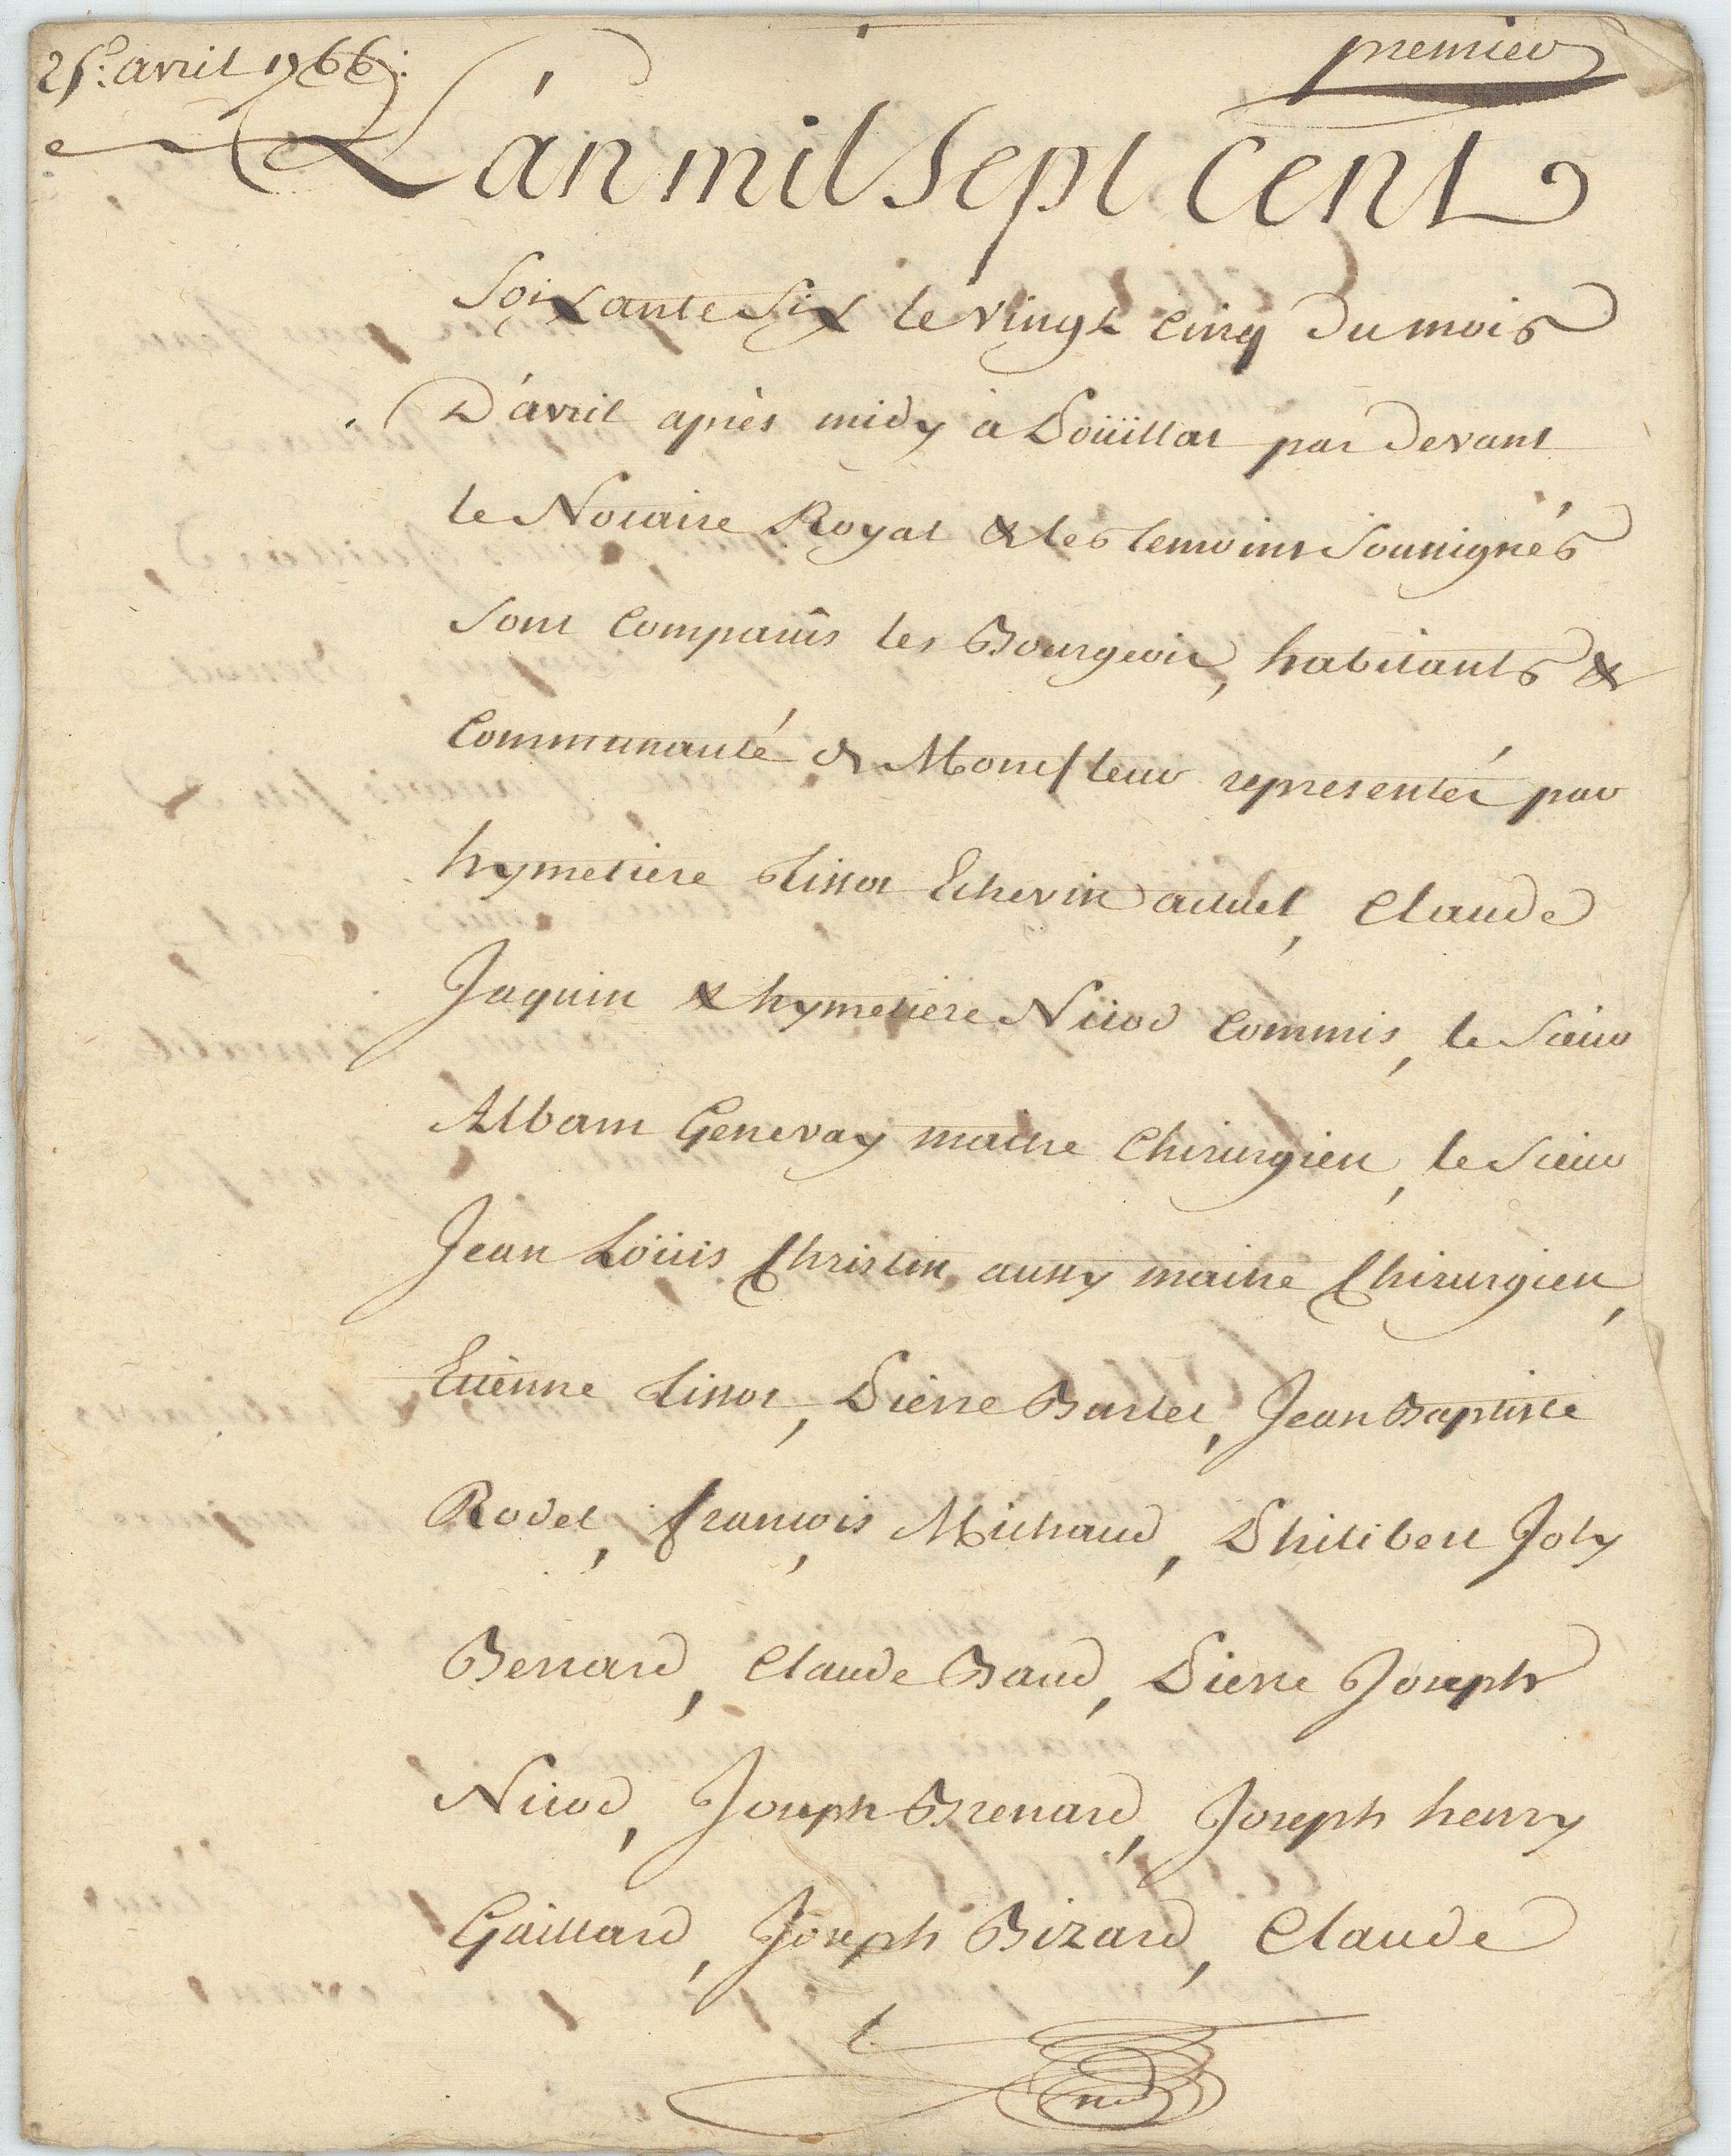 25e: avril 1766:
premier
L'an mil sept cent
soixante six le vingt cinq du mois
D'avril après midy à Poüillat par devant
le Notaire Royal & les temoins soussignés
sont comparûs les Bourgeois, habitants &
communauté de Monfleur representés par
hymetiere Tissot Echevin actuel, Claude
Jaquin & hymetiere Nicod commis, le Sieur
Albam Genevay maitre Chirurgien, le Sieur
Jean Loüis Christin aussy maitre Chirurgien,
Etienne Tissot, Pierre Bartet, Jean Baptiste
Rodet, françois Michaud, Philibert Joly
Bernard, Claude Baud, Pierre Joseph
Nicod, Joseph Brenard, Joseph henry
Gaillard, Joseph Bizard, Claude